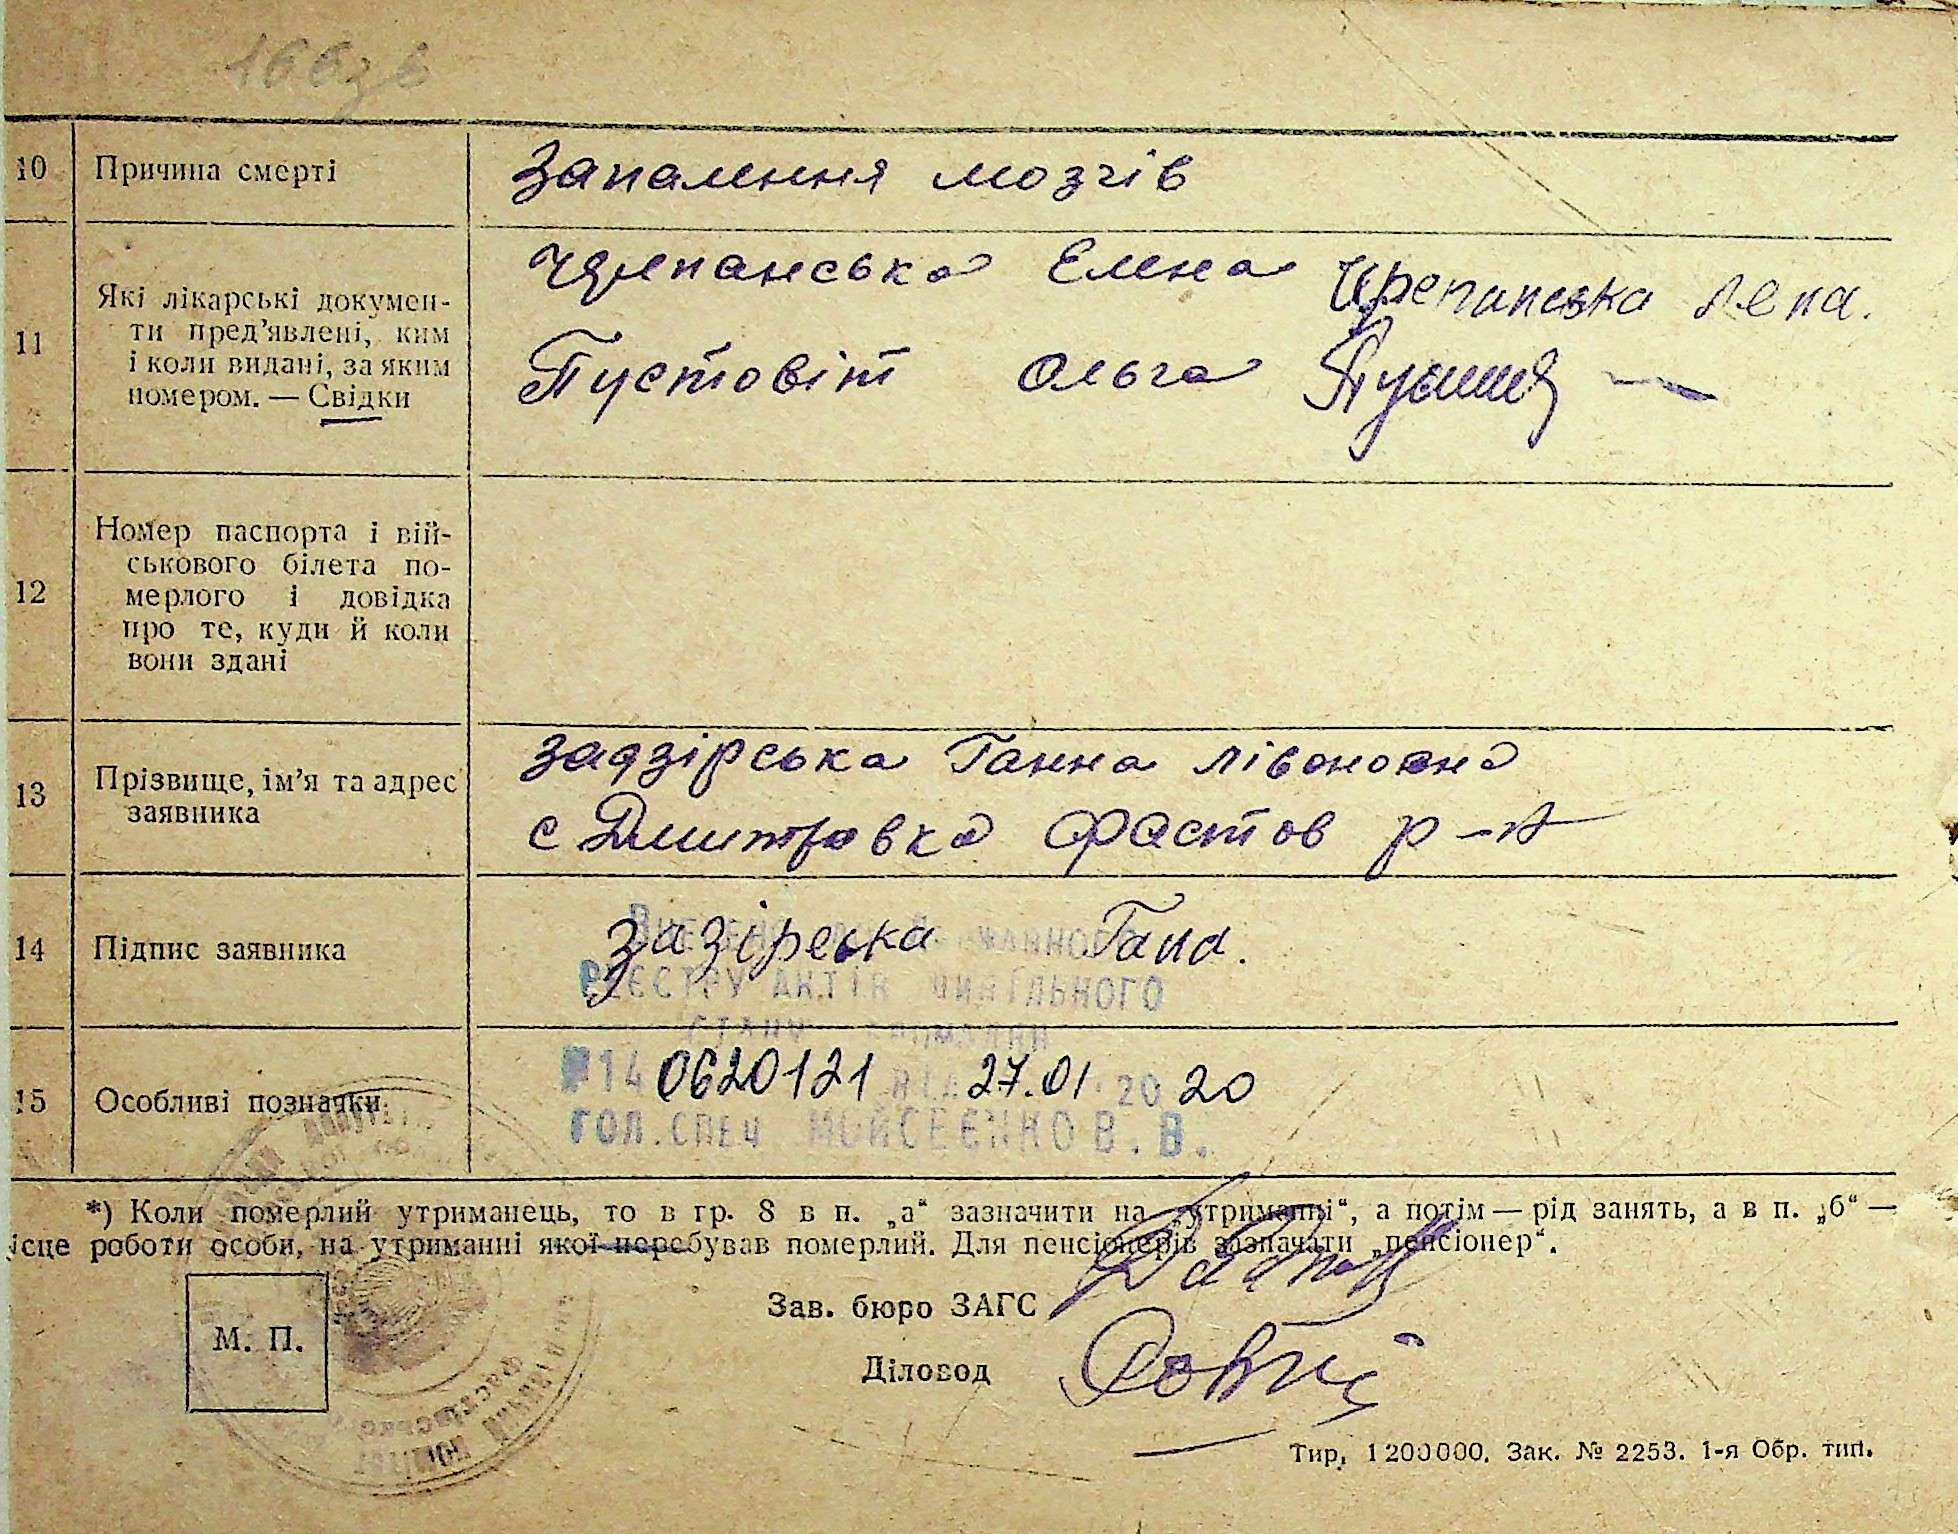 166зв
10 Причина смерті Запалення мозгів
11 Які лікарські докумен-
ти пред’явлені, ким
і коли видані, за яким
номером. — Свідки
Елена Черепинська Лена.
Пустовіт Ольга
12 Номер паспорта і вій-
ськового білета по-
мерлого і довідка
про те, куди й коли
вони здані
13 Прізвище, ім’я та адрес
заявника
Задзірська Ганна
с Дмитровка Фастов р-н
14 Підпис заявника Зазірська Гана.
РЕЄСТРУ АКТІВ ЦИВІЛЬНОГО
СТАНУ ГРОМАДЯН
15 Особливі позначки
№14 0620121 ВІД 27.01.2020
ГОЛ.СПЕЦ МОЙСЕЄНКО В.В.
*) Коли померлий утриманець, то в гр. 8 в п. „а“ зазначити на „утриманні“, а потім — рід занять, а в п. „б“ —
місце роботи особи, на утриманні якої перебував померлий. Для пенсіонерів зазначати „пенсіонер“.
М. П.
Зав. бюро ЗАГС
Діловод
Тир. 1200000. Зак. № 2253. 1-я Обр. тип.